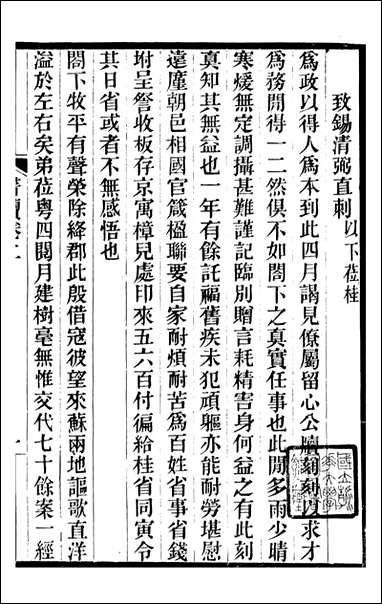 致錫清弼直刺 以下莅桂
爲政以得人爲本到此四月謁見僚屬留心公牘刻刻以求才
爲務聞得一二然俱不如閣下之真實任事也此間多雨少晴
寒煖無定調攝甚難謹記臨別贈言耗精害身何益之有此刻
真知其無益也一年有餘託福舊疾未犯頑軀亦能耐勞堪慰
遠廑朝邑相國官箴楹聯要自家耐煩耐苦爲百姓省事省錢
坿呈詧收板存京寓樟兒處印來五六百付徧給桂省同寅令
其日省或者不無感悟也
閣下牧平有聲榮除絳郡此殷借寇彼望來蘇兩地謳歌直洋
溢於左右矣弟莅粤四閱月建樹毫無惟交代七十餘案一經
書牘卷二
一